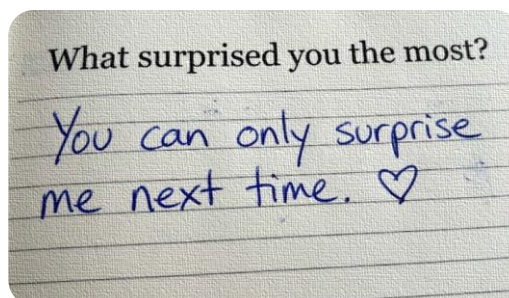 What surprised you the most?
You can only surprise
me next time. ♡